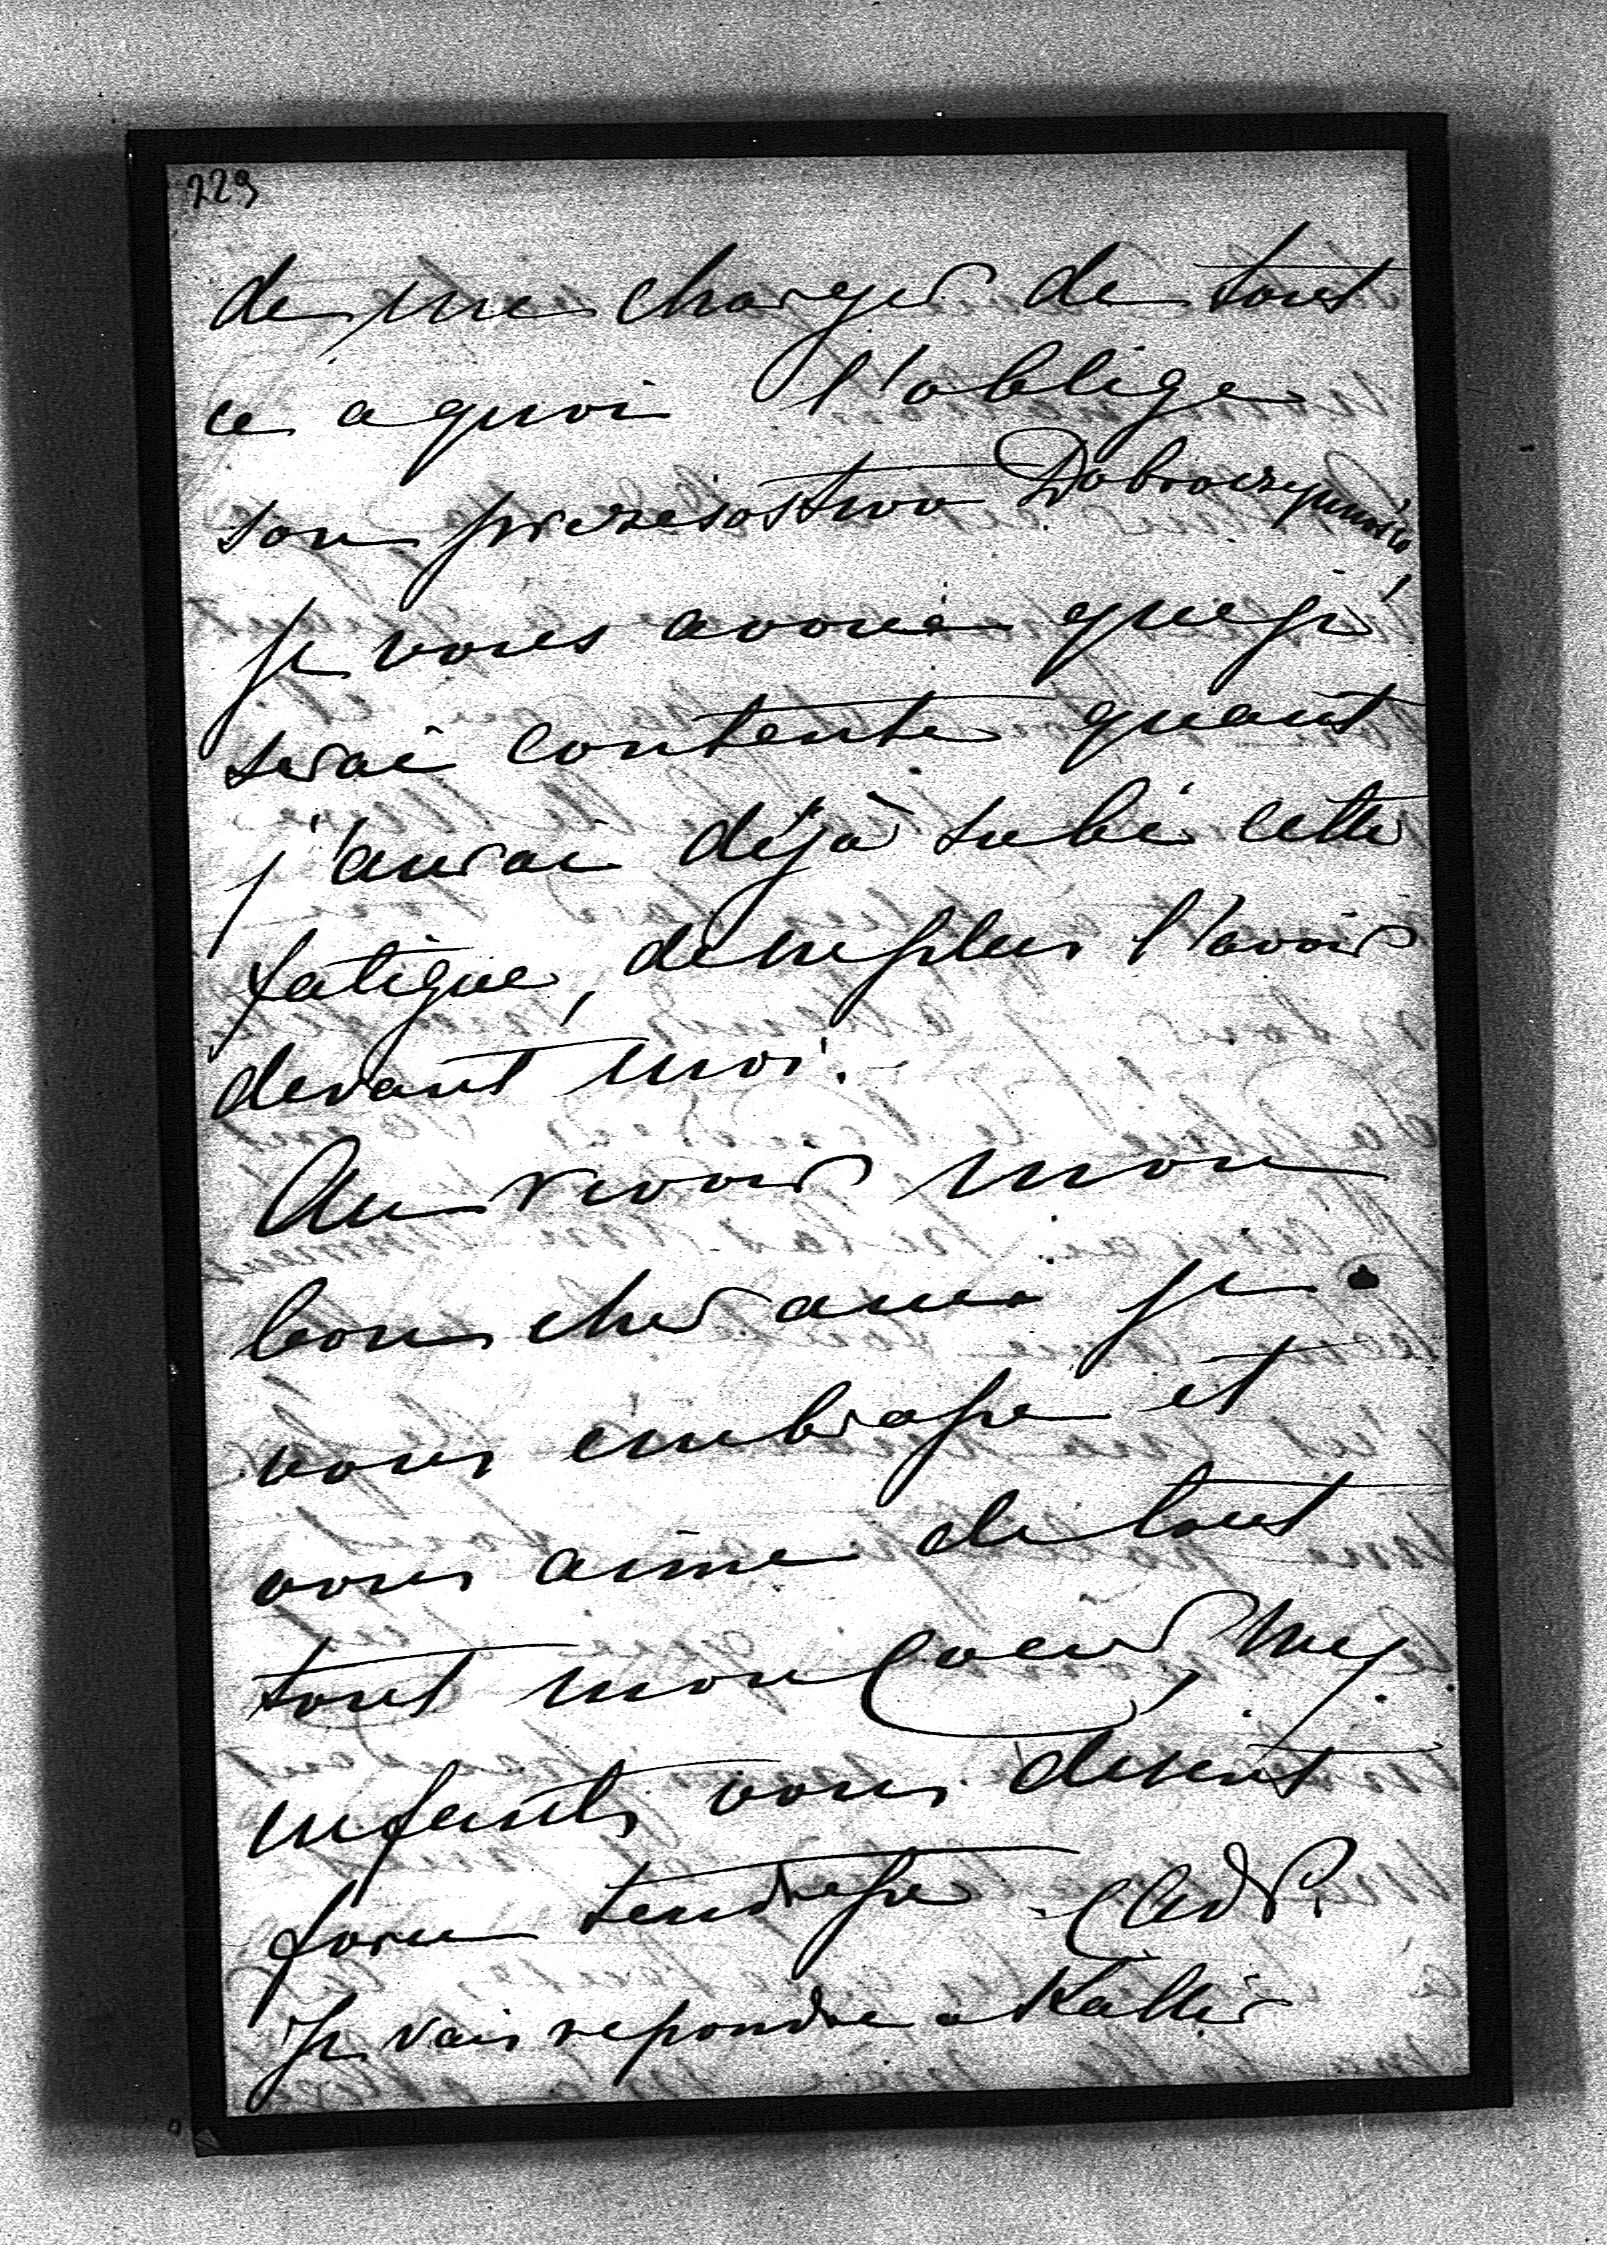 229
de me charger de tout
ce a quoi l'oblige
son prezesostwo Dobroczynności
Je vous avoue que je
serai contente quant
j'aurai déjà subi cette
fatigue, de ne plus l'avoir
devant moi.
Au revoir mon
bon cher ami je
vous embrasse et
vous aime de tout
tout mon Coeur, mes
enfants vous disent
foru tendresse
Je vais repondre a